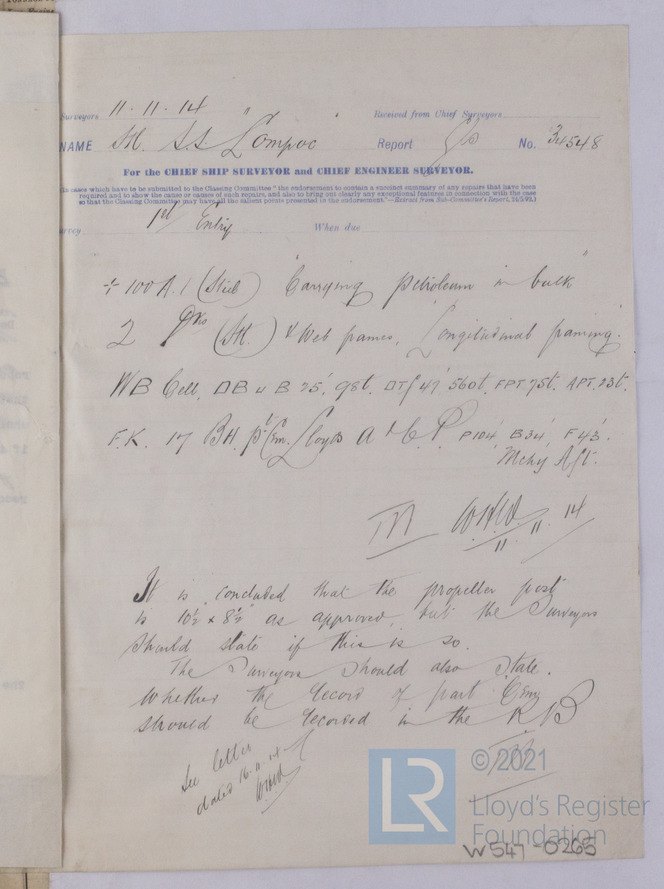 Surveyors 11.11.14 Received from Chief Surveyors
NAME St. SS "Lompoc" Report Gls No. 34548
For the CHIEF SHIP SURVEYOR and CHIEF ENGINEER SURVEYOR.
cases which have to be submitted to the Classing Committee "the endorsement to contain a succinct summary of any repairs that have been
required and to show the cause or causes of such repairs, and also to bring out clearly any exceptional features in connection with the case
so that the Classing Committee may have all the salient points presented in the endorsement."—(Extract from Sub-Committee's Report, 21/3/93.)
1st Entry When due
÷ 100 A.1 (Steel) "Carrying petroleum in bulk"
2 Dks (Stl.) & Web frames, Longitudinal framing.
WB Cell. DB u B 25', 98t. DTf 47' 560t, FPT 75t. APT 23t.
F.K. 17 BH. pt Cem. Lloyds A & C.P. P104', B34', F43'.
Mchy Aft.
11.11.14
It is concluded that the propeller post
is 10½ x 8½" as approved, but the Surveyors
should state if this is so.
The Surveyors should also state.
Whether the record of part Cem
should be recorded in the RB
See letter
dated 16.11.14
LR
© 2021
Lloyd's Register
Foundation
W547-0265